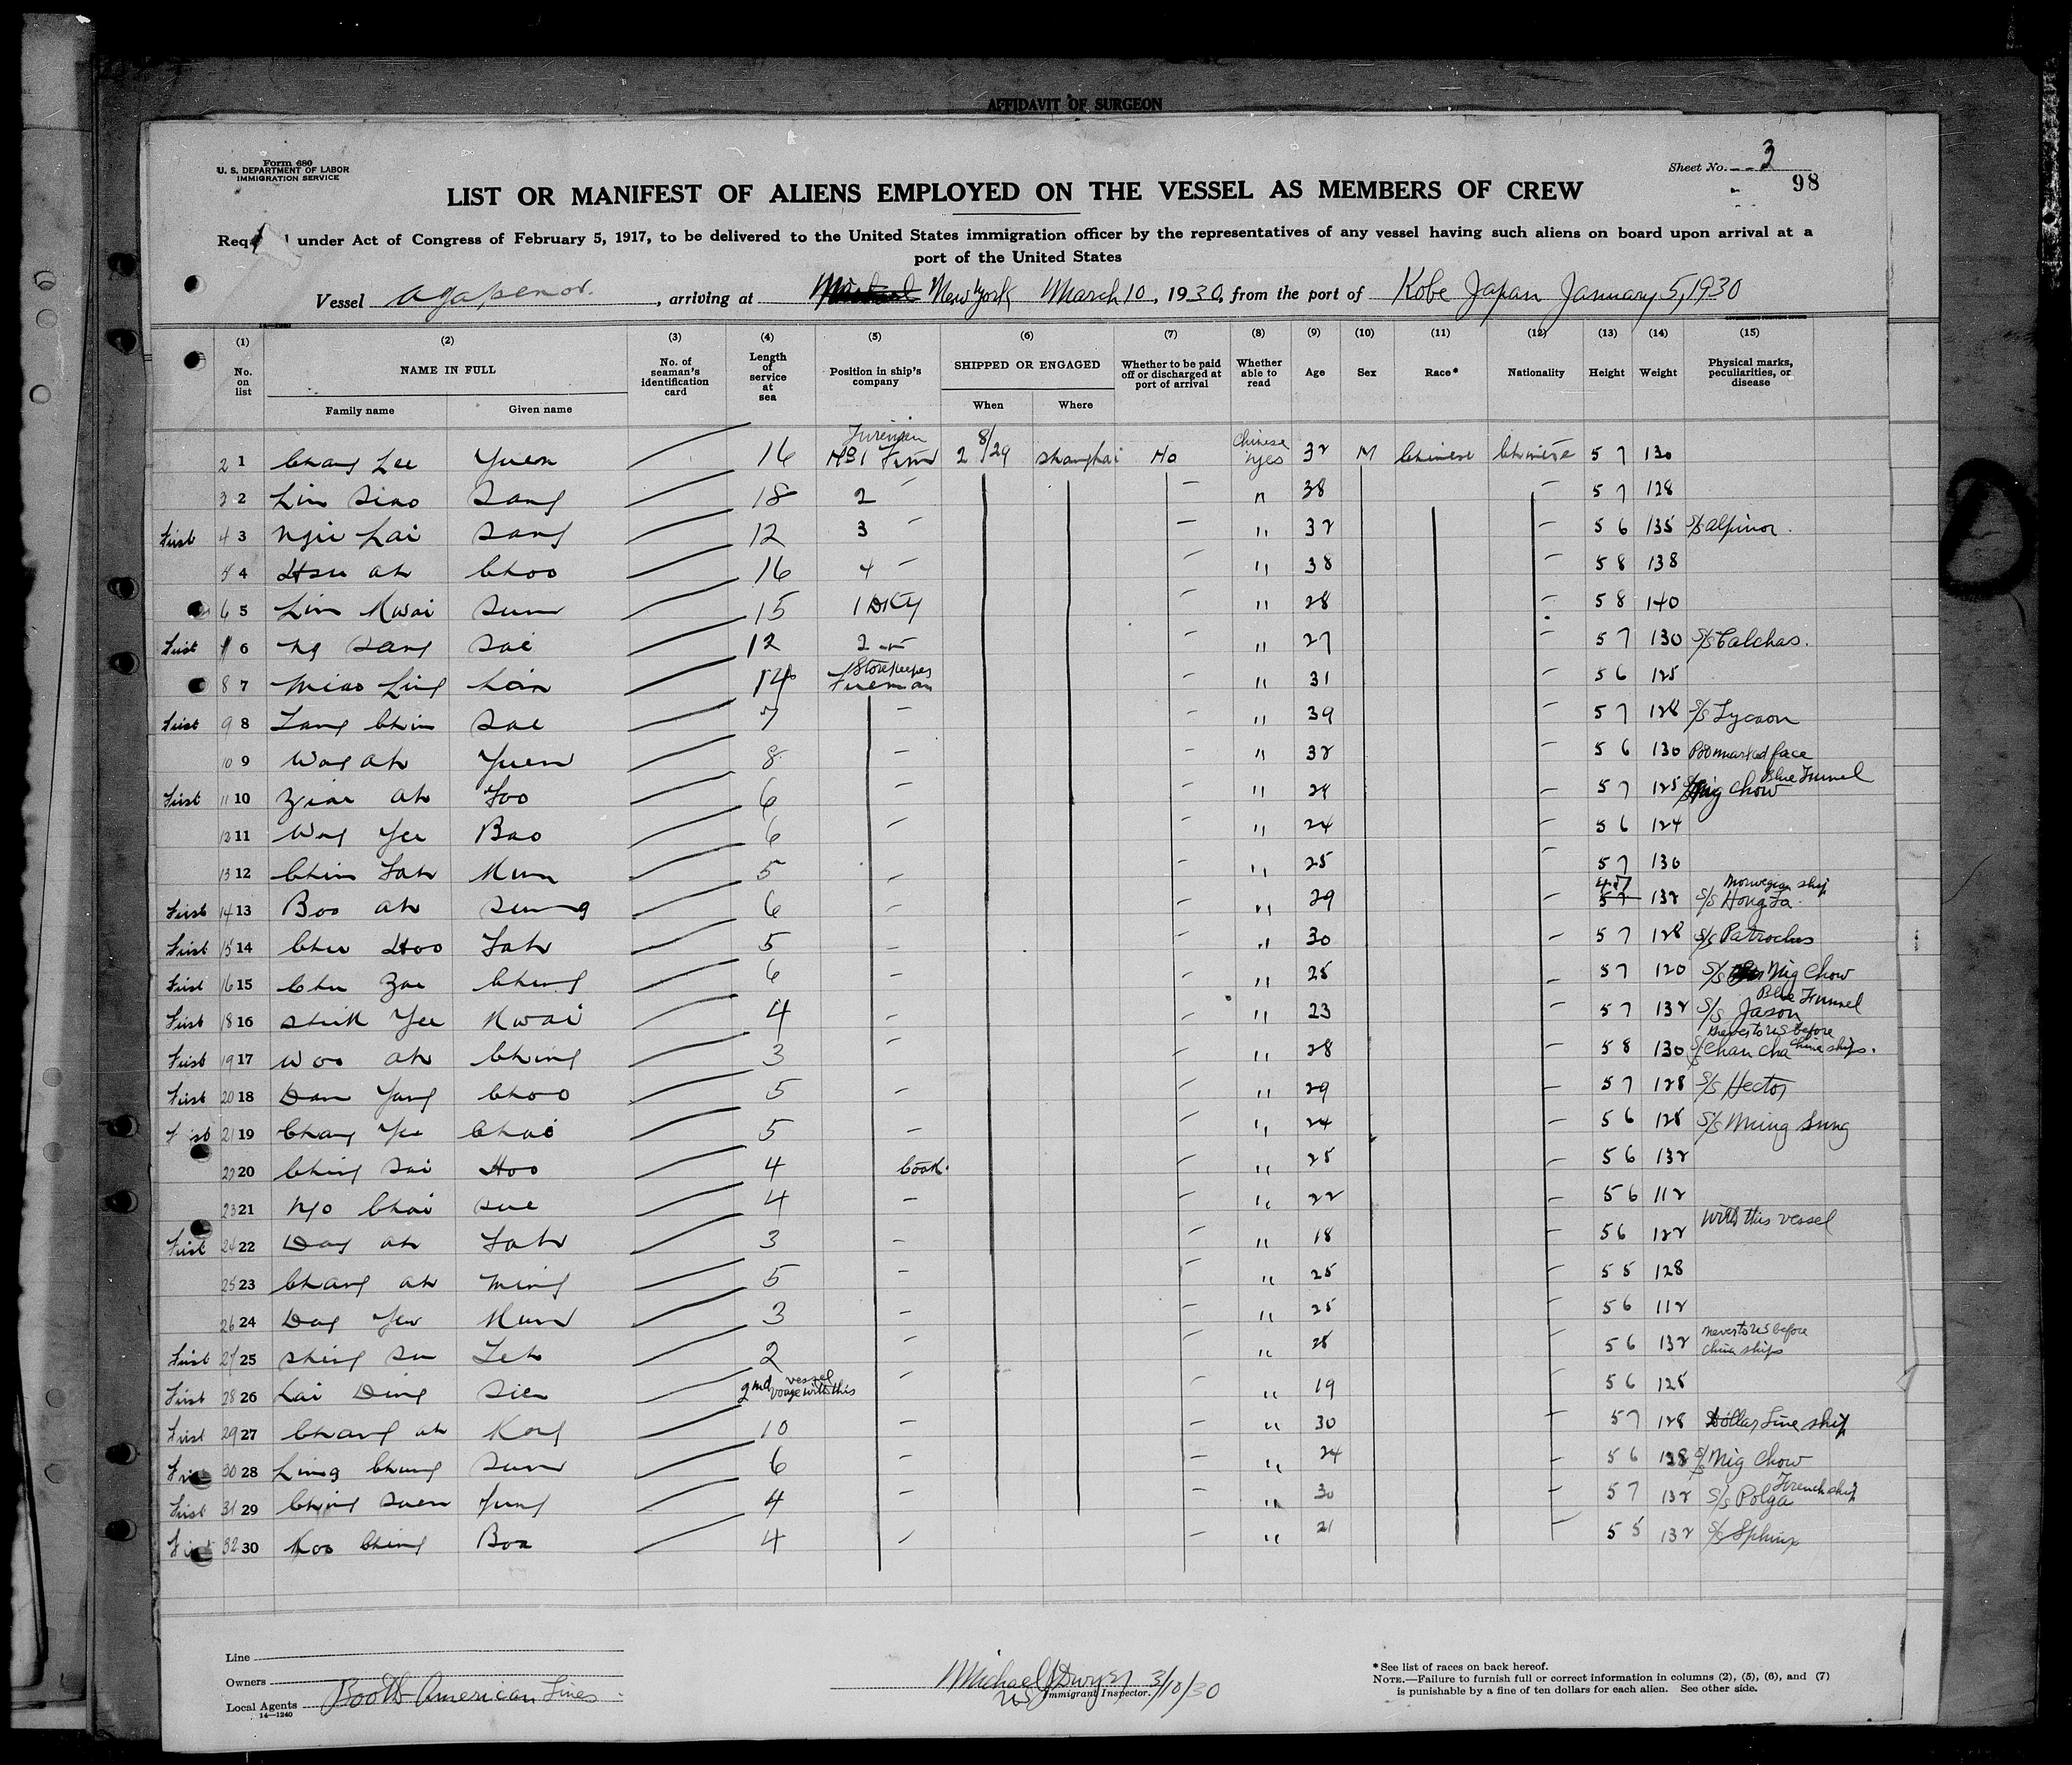 AFFIDAVIT OF SURGEON
Form 680
U. S. DEPARTMENT OF LABOR
IMMIGRATION SERVICE
Sheet No. 3
98
LIST OR MANIFEST OF ALIENS EMPLOYED ON THE VESSEL AS MEMBERS OF CREW
under Act of Congress of February 5, 1917, to be delivered to the United States immigration officer by the representatives of any vessel having such aliens on board upon arrival at a
port of the United States
Vessel Agapenor, arriving at New York March 10, 1930, from the port of Kobe Japan January 5, 1930
(1) (2) (3) (4) (5) (6) (7) (8) (9) (10) (11) (12) (13) (14) (15)
No. on list NAME IN FULL Family name Given name No. of seaman's identification card Length of service at sea Position in ship's company SHIPPED OR ENGAGED When Where Whether to be paid off or discharged at port of arrival Whether able to read Age Sex Race* Nationality Height Weight Physical marks, peculiarities, or disease
2 1 Chang Lee Yuen 16 No 1 2 8/29 Shanghai No Chinese Yes 32 M Chinese Chinese 5 7 130
3 2 Lin Siao Sang 18 2 " 38 5 7 128
First 4 3 Ngii Lai Sang 12 3 " 32 5 6 135 S/S Alpinor.
5 4 Hsu Ah Choo 16 4 " 38 5 8 138
6 5 Lin Kwai Sun 15 1 DKy " 28 5 8 140
First 6 Ng Sang Sai 12 2 " 27 5 7 130 S/S Calchas.
8 7 Miao Ling Lain 14 Storekeeper Fireman " 31 5 6 125
First 9 8 Tang Chin Sae 7 " 39 5 7 128 S/S Lycaon
10 9 Wog Ah Yuen 8 " 32 5 6 130 face
First 11 10 Ziao Ah Foo 6 " 24 5 7 125 Nig Chow Blue Funnel
12 11 Wog Yee Bao 6 " 24 5 6 124
13 12 Chin Fah Kun 5 " 25 5 7 130
First 14 13 Boo Ah Sung 6 " 29 5 7 132 S/S Hong Fa. Norwegian ship
First 15 14 Chu Hoo Fah 5 " 30 5 7 128 S/S Patroclus
First 16 15 Chu Zae Chung 6 " 25 5 7 120 S/S Nig Chow
First 18 16 Shih Yee Kwai 4 " 23 5 7 132 S/S Jason Blue Funnel
First 19 17 Woo Ah Ching 3 " 28 5 8 130 S/S Chan Cha never to US before China ships.
First 20 18 Dan Yang Choo 5 " 29 5 7 128 S/S Hector
First 21 19 Chang Yee Chai 5 " 24 5 6 128 S/S Ming Sung
22 20 Ching Sai Hoo 4 Cook. " 25 5 6 132
23 21 Ngo Chai Sue 4 " 22 5 6 112
First 24 22 Dog Ah Fah 3 " 18 5 6 122 With this vessel
25 23 Chang Ah Ming 5 " 25 5 5 128
26 24 Dog Yew Kun 3 " 25 5 6 112
First 27 25 Shing Su Leh 2 " 28 5 6 132 never to US before China ships
First 28 26 Lai Ding Sien 2nd voyage with this vessel " 19 5 6 125
First 29 27 Chang Ah Kog 10 " 30 5 7 128 Dollar Line ship
First 30 28 Ling Chung Sun 6 " 24 5 6 128 S/S Nig Chow
First 31 29 Ching Suen Yung 4 " 30 5 7 132 S/S Polga French ship
First 32 30 Koo Ching Boa 4 " 21 5 5 132 S/S Sphinx
Line
Owners
Local Agents Booth American Lines
14—1240
Michael J Dwyer 3/10/30
Immigrant Inspector.
*See list of races on back hereof.
NOTE.—Failure to furnish full or correct information in columns (2), (5), (6), and (7)
is punishable by a fine of ten dollars for each alien. See other side.